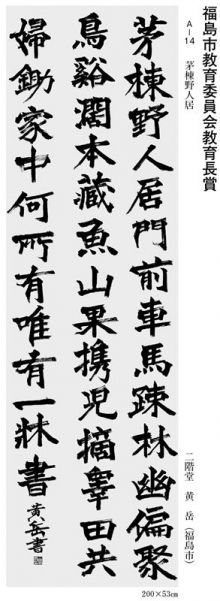 福島市教育委員会教育長賞
A-14　茅棟野人居
二階堂　黄　岳（福島市）
茅棟野人居門前車馬疎林幽偏聚
鳥谿濶本藏魚山果携児摘睾田共
婦鋤家中何所有唯有一牀書
黄岳書
200×53cm